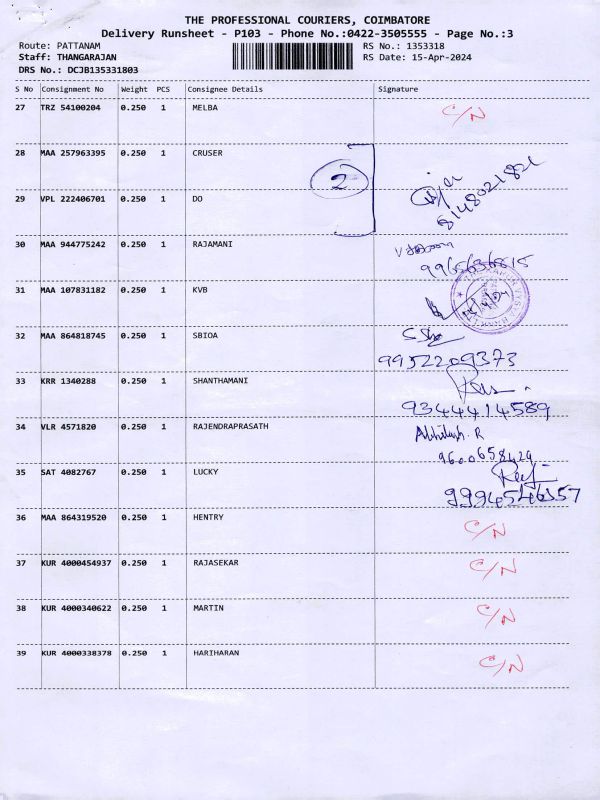 THE PROFESSIONAL COURIERS, COIMBATORE
Delivery Runsheet - P103 - Phone No.:0422-3505555 - Page No.:3
Route: PATTANAM RS No.: 1353318
Staff: THANGARAJAN RS Date: 15-Apr-2024
DRS No.: DCJB135331803
S No Consignment No Weight PCS Consignee Details Signature
27 TRZ 54100204 0.250 1 MELBA C/N
28 MAA 257963395 0.250 1 CRUSER
2
8148021821
29 VPL 222406701 0.250 1 DO
30 MAA 944775242 0.250 1 RAJAMANI
9965636815
31 MAA 107831182 0.250 1 KVB
32 MAA 864818745 0.250 1 SBIOA
9952209373
33 KRR 1340288 0.250 1 SHANTHAMANI
9344414589
34 VLR 4571820 0.250 1 RAJENDRAPRASATH Abhilash. R
9600658429
35 SAT 4082767 0.250 1 LUCKY
9994546357
36 MAA 864319520 0.250 1 HENTRY C/N
37 KUR 4000454937 0.250 1 RAJASEKAR C/N
38 KUR 4000340622 0.250 1 MARTIN C/N
39 KUR 4000338378 0.250 1 HARIHARAN C/N